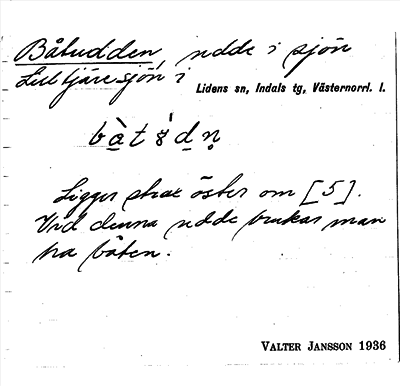 Båtudden, udde i sjön
Lill tjäresjön i
Lidens sn, Indals tg, Västernorrl. l.
Ligger strax öster om [5].
Vid denna udde brukar man
ha båten.
VALTER JANSSON 1936